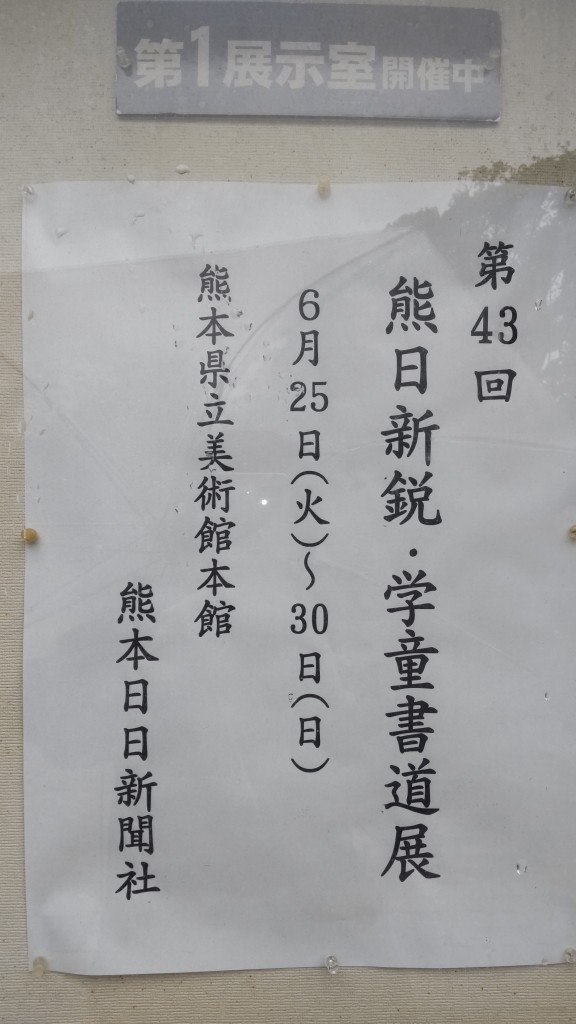 第1展示室開催中
第43回
熊日新鋭・学童書道展
6月25日(火)～30日(日)
熊本県立美術館本館
熊本日日新聞社